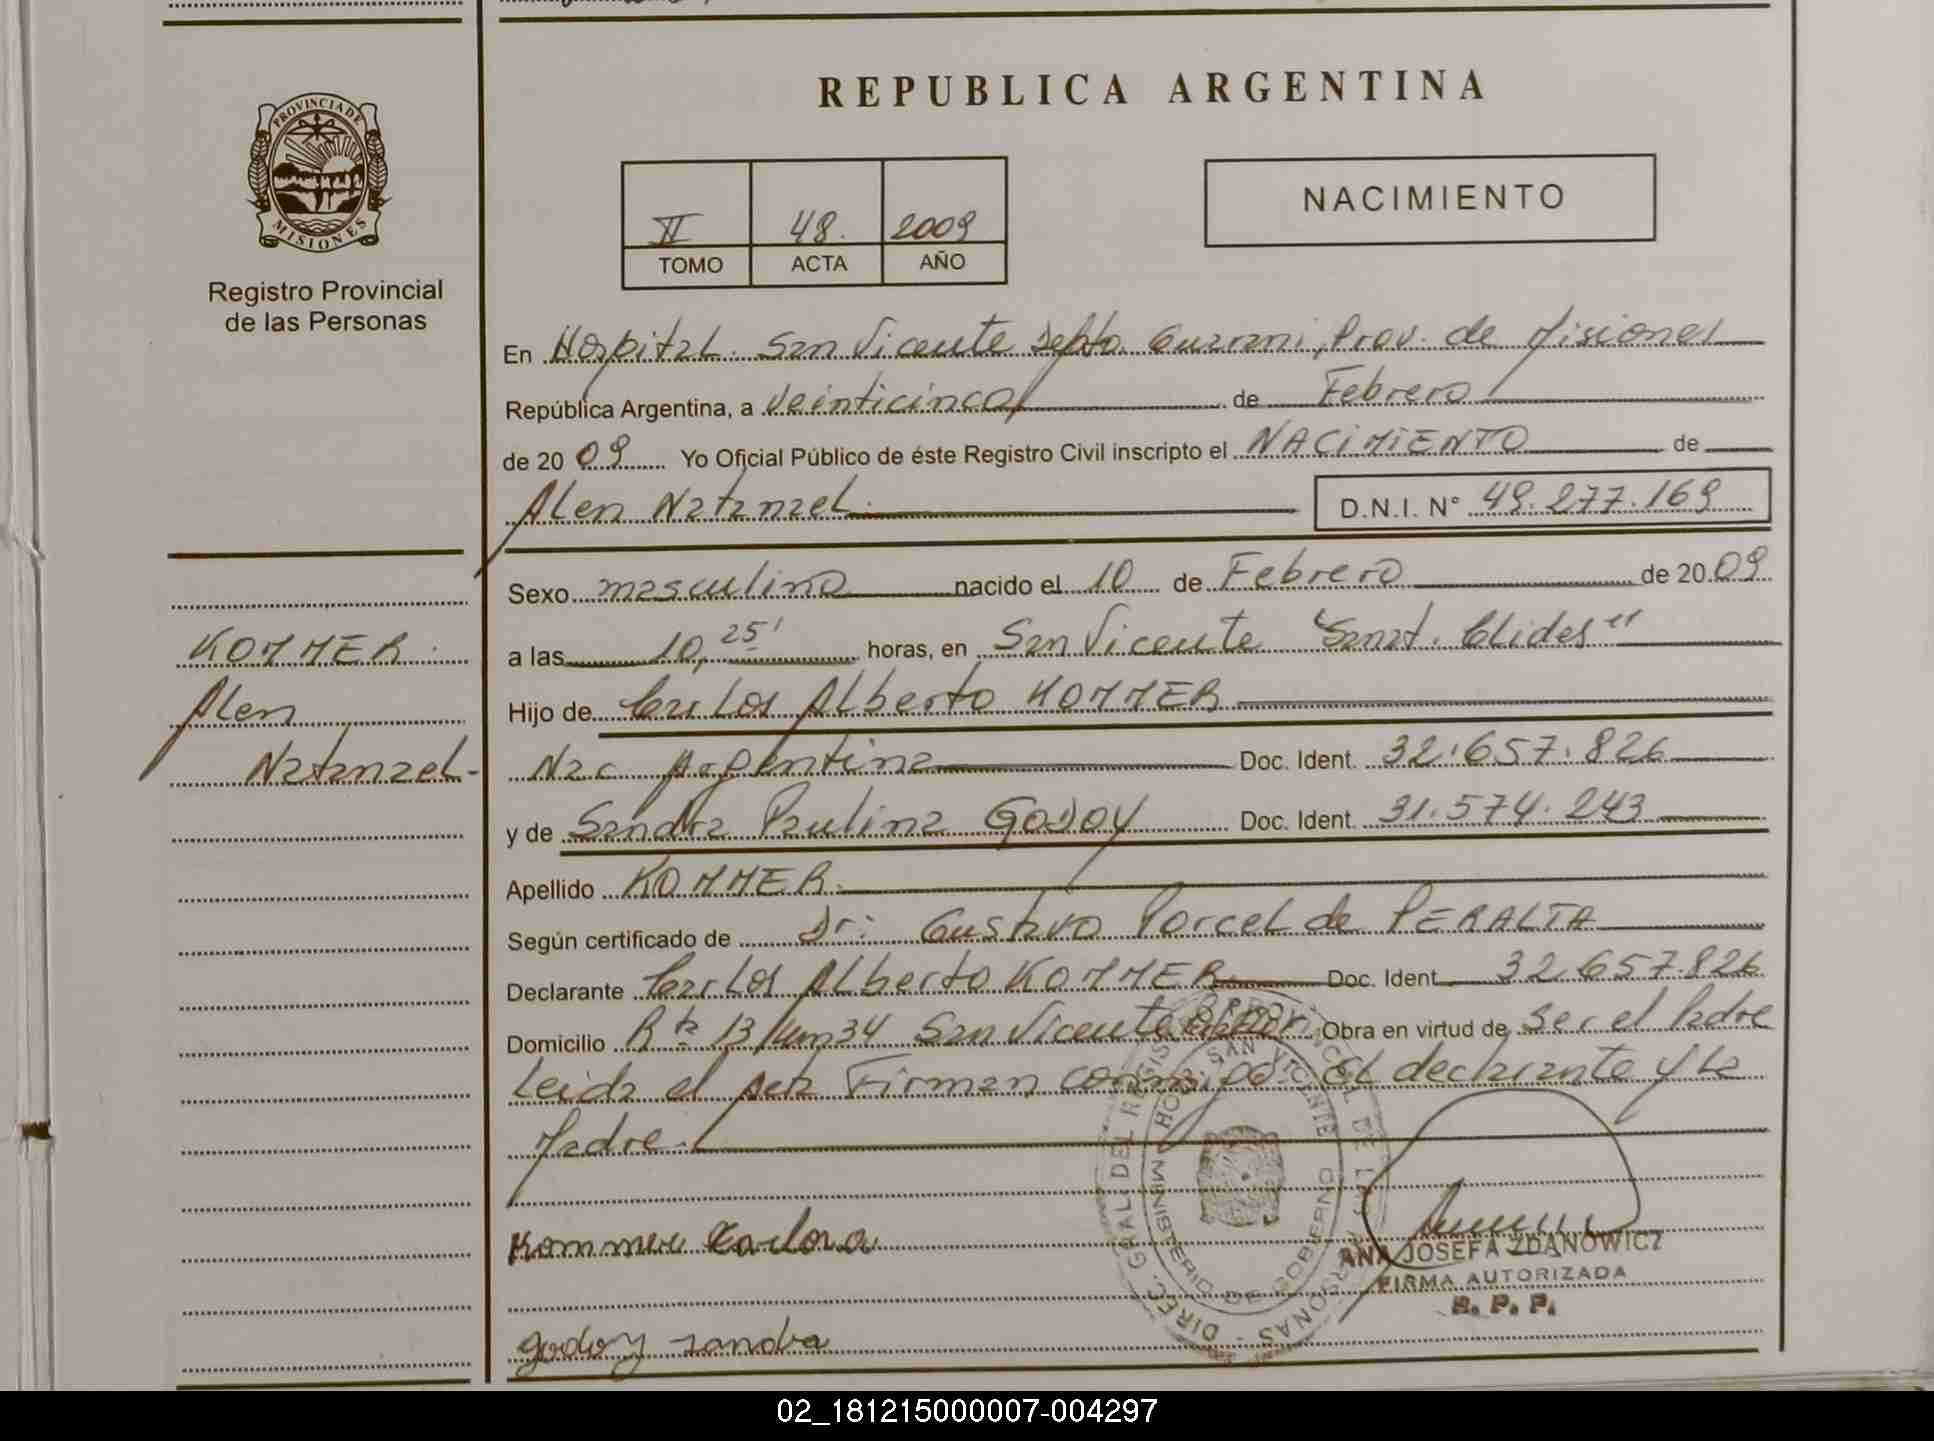 REPUBLICA ARGENTINA
PROVINCIA DE
MISIONES
Registro Provincial
de las Personas
II 48. 2009
TOMO ACTA AÑO
NACIMIENTO
En Hospital. San Vicente Depto. Guarani, Prov. de Misiones
República Argentina, a veinticinco de Febrero
de 2009 Yo Oficial Público de éste Registro Civil inscripto el NACIMIENTO de
Alen Natanael. D.N.I. N° 49.277.169
Sexo masculino nacido el 10 de Febrero de 2009
a las 10,25' horas, en San Vicente "Sanat.
Hijo de Carlos Alberto KOMMER
Nac Argentina Doc. Ident. 32.657.826
y de Sandra Paulina GODOY Doc. Ident. 31.574.243
Apellido KOMMER.
Según certificado de Dr: Gustavo Porcel de PERALTA
Declarante Carlos Alberto KOMMER Doc. Ident 32.657.826
Domicilio Rta 13 km 34 San Vicente Obra en virtud de Ser el Padre
Leida el Acta Firman conmigo El declarante y La
Madre.
KOMMER.
Alen
Natanael-
DIREC. GRAL DEL REGISTRO PROVINCIAL DE LAS PERSONAS -
MINISTERIO DE GOBIERNO
HOSP. SAN VICENTE
Kommer
godoy sandra
ANA JOSEFA ZDANOWICZ
FIRMA AUTORIZADA
R. P. P.
02_181215000007-004297